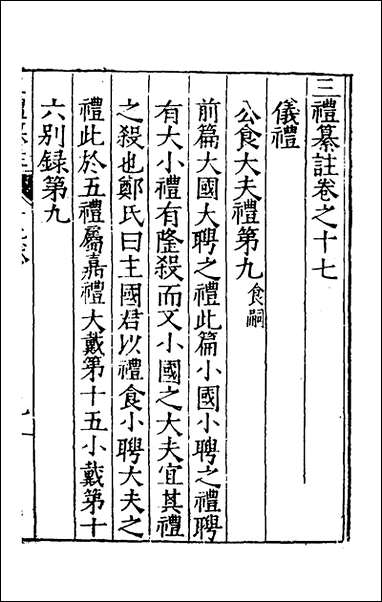 三禮纂註卷之十七
儀禮
公食大夫禮第九食嗣
前篇大國大聘之禮此篇小國小聘之禮聘
有大小禮有隆殺而又小國之大夫宜其禮
之殺也鄭氏曰主國君以禮食小聘大夫之
禮此於五禮屬嘉禮大戴第十五小戴第十
六別録第九